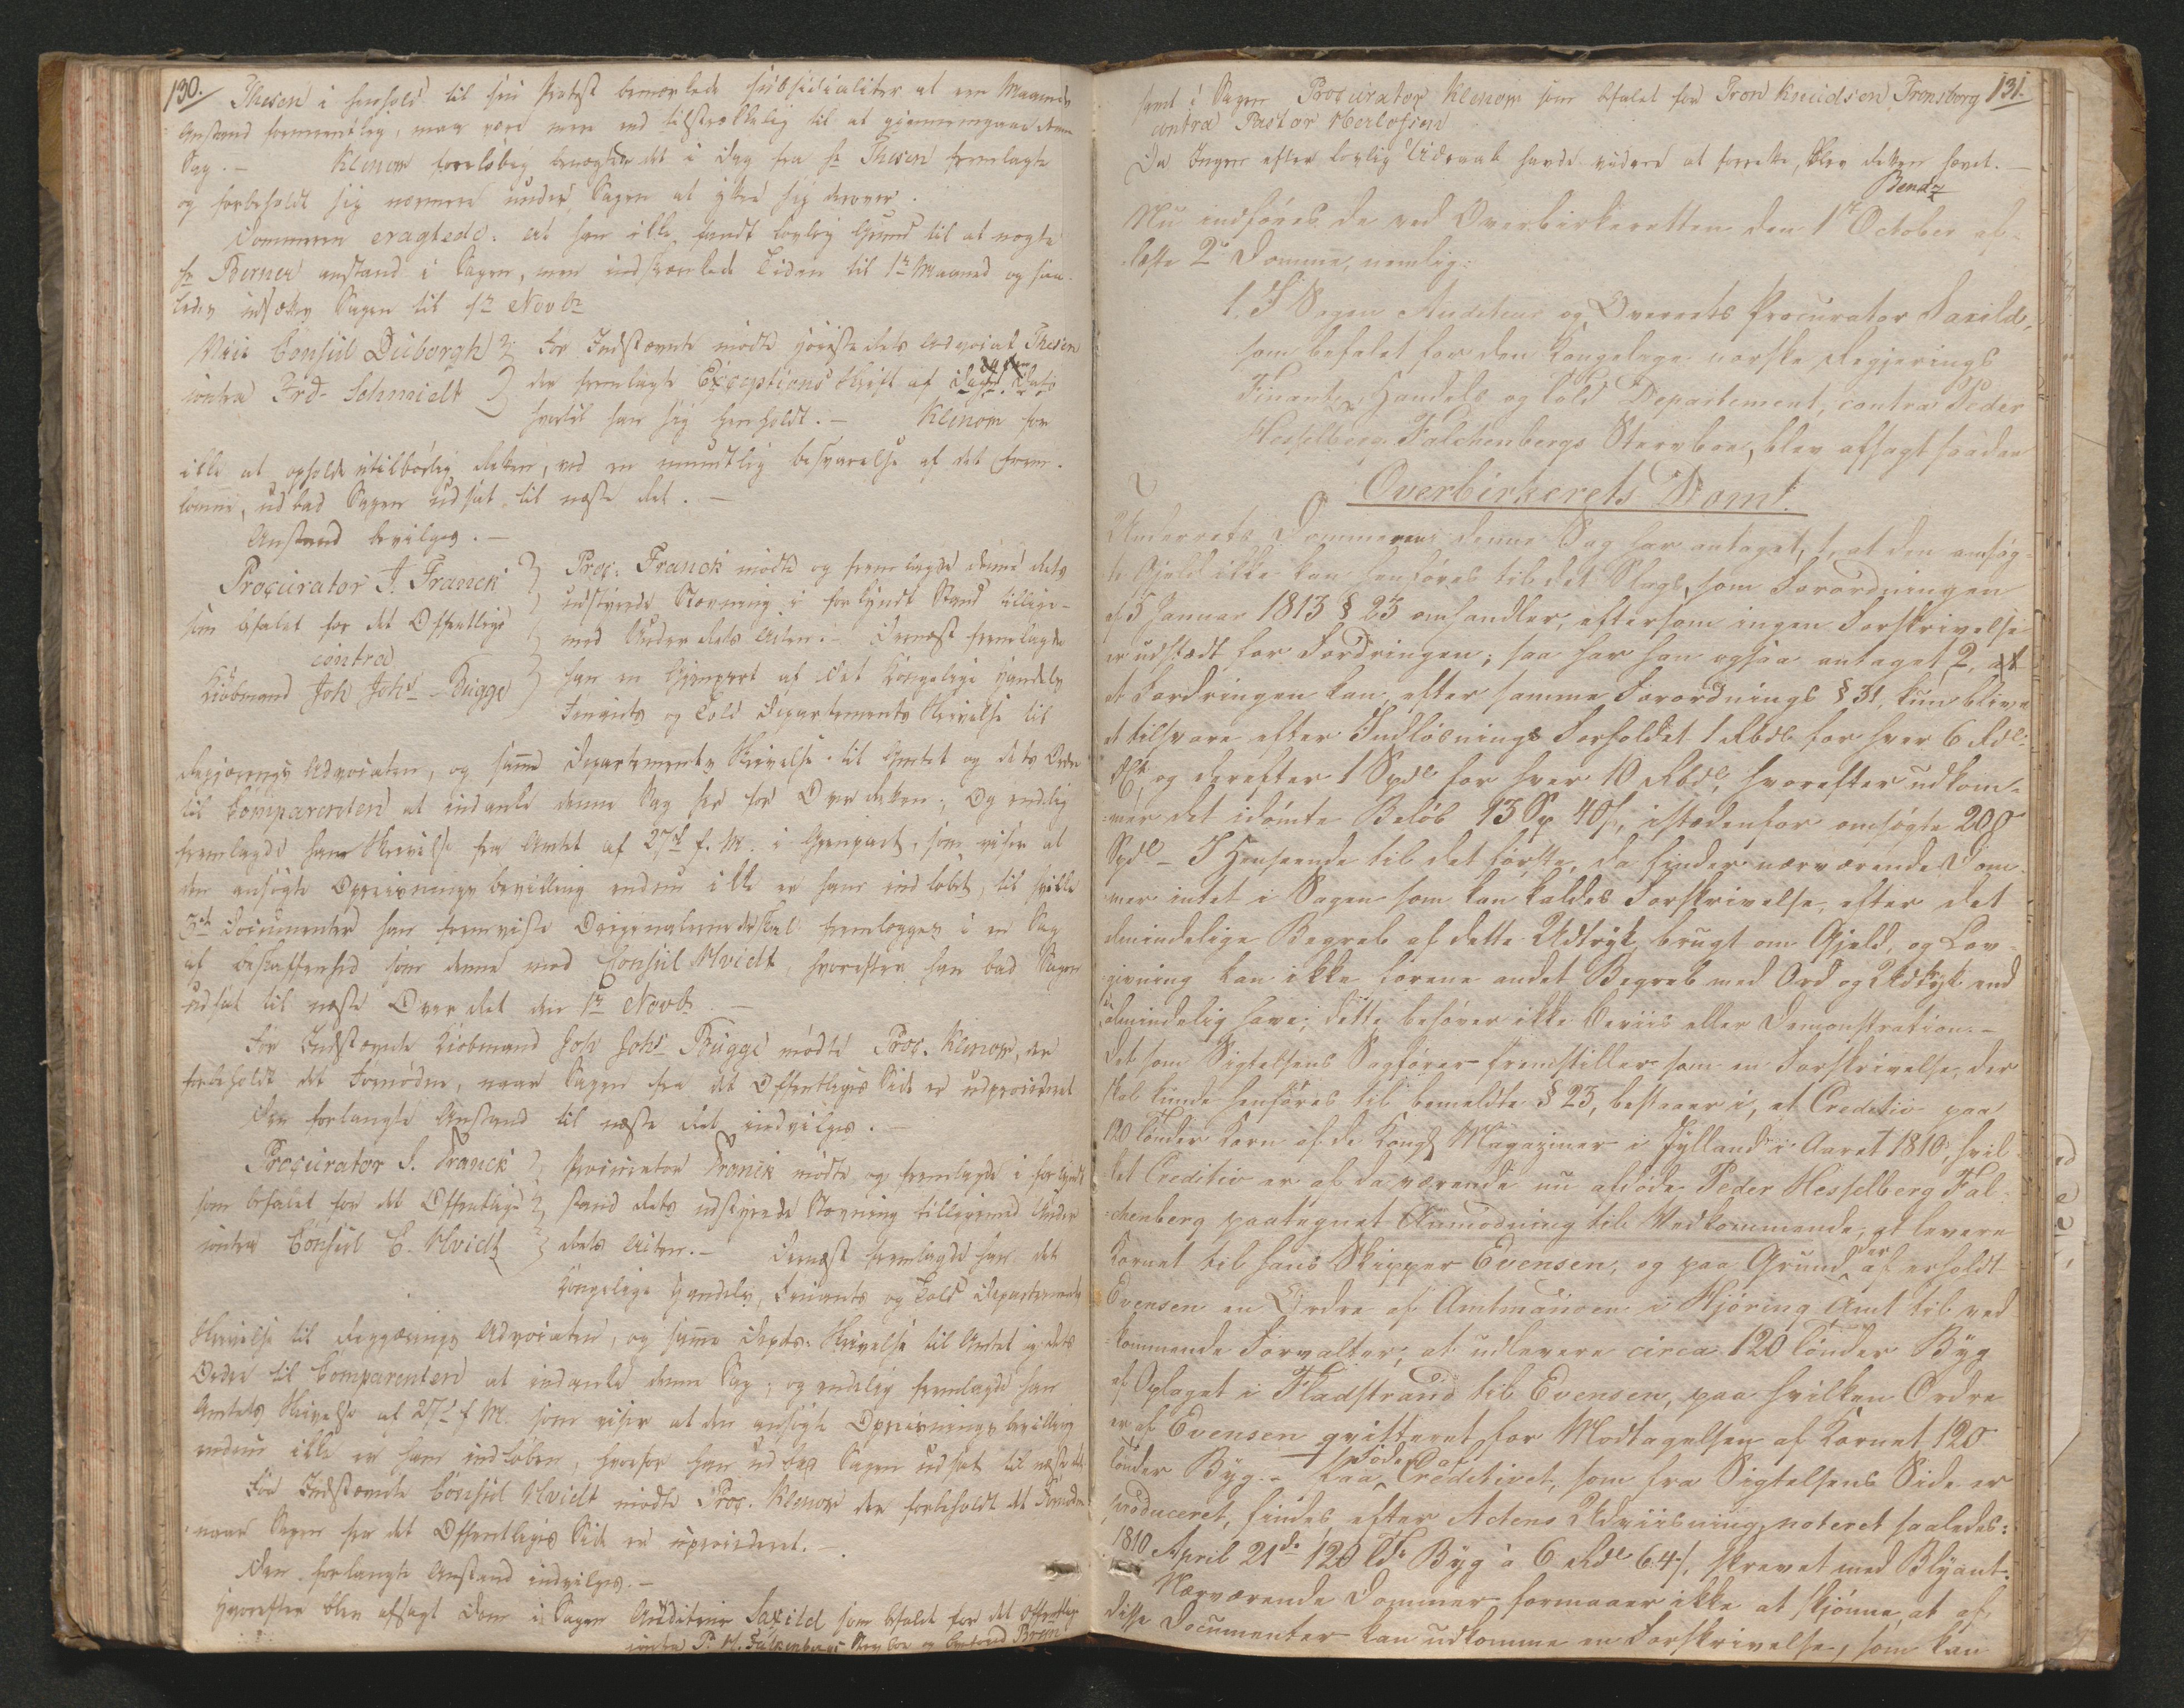 130.
Thesen i henhold til sin Protest bemærkede subsidialiter at een Maaneds
Anstand formeentlig, maa være meer end tilstrækkelig til at gjennemgaae denne
Sag. – Klenow foreløbig benægtede det i Dag fra Hr Thesen fremlagte
og forbeholdt sig nærmere under Sagen at yttre sig derover.
Dommeren eragtede: at han ikke fandt lovlig Grund til at nægte
Hr Berner anstand i Sagen, men indskrænkede Tiden til 1 Maaned og saa-
ledes udsættes Sagen til 1te Novbr
Vice Consul Duborgh
contra Frd. Schmidt
For Indstævnte mødte Advocat Thesen
der fremlagte Exceptions Skrift af Dags Dato
hvortil han sig henholdt. – Klenow for
ikke at opholde utilbørlig Retten, ved en mundtlig besvarelse af det frem-
komne, udbad Sagen udsat til næste Ret. –
Anstand bevilges. –
Procurator J. Franck
som befalet for det Offentlige
contra
Kiøbmand Joh Johs Brügge
Proc. Franck mødte og fremlagde denne Rets
udstyrede Stævning i forkyndt Stand tillige-
med Under Rets Acten. – Dernæst fremlagde
han en Gjenpart af det Kongelige Handels
Finants og Told Departements Skrivelse til
Regjerings Advocaten, og samme Departements Skrivelse til Amtet og dets Ordre
til Comparenten at indanke denne Sag her for Over Retten; Og endelig
fremlagde han Skrivelse fra Amtet af 27de f. M. i Gjenpart, som viser at
den ansøgte Opreisnings bevilling endnu ikke er ham indløbet, til hvilke
3de Documenter han foreviste Originalerne der skal fremlægges i en Sag
af beskaffenhed som denne mod Consul Hvidt, hvorefter han bad Sagen
udsat til næste Over Ret den 1te Novbr –
For Indstævnte Kiøbmand Joh Johs Brügge mødte Proc. Klenow, der
forbeholdt det Fornødne, naar Sagen fra det Offentliges Side er udprocederet
Den forlangte Anstand til næste Ret indvilges. –
Procurator J. Franck
som befalet for det Offentlige
contra Consul E. Hvidt
Procurator Franck mødte og fremlagde i forkyndt
stand Rets udstyrede Stævning tilligemed Under
Rets Acten. – Dernæst fremlagde han det
Kongelige Handels, Finants og Told Departements
Skrivelse til Regjerings Advocaten, og samme Depts. Skrivelse til Amtet og dets
Ordre til Comparenten at indanke denne Sag; og endelig fremlagde han
Amtets Skrivelse af 27de f. M. som viser at den ansøgte Opreisnings bevilling
endnu ikke er ham indløben, hvorfor han udbad Sagen udsat til næste Ret
For Indstævnte Consul Hvidt mødte Proc. Klenow der forbeholdt det Fornødne
naar Sagen fra det Offentliges Side er udprocederet. –
Den forlangte Anstand indvilges. –
Hvorefter blev afsagt Dom i Sagen Auditeur Saxild som befalet for det Offentlige
contra P. H. Falkenbergs Sterboe og
131.
samt i Sagen Procurator Klenow som befalet for Tron Knudsen Tronsborg
contra Pastor Herlofsen
Da Ingen efter lovlig Udraab havde videre at forrette, blev Retten hævet. –
Bendz
Nu indføres de ved Overbirkeretten den 1te October af-
sagte 2de Domme, nemlig:
1. I Sagen Auditeur og Overrets Procurator Saxild,
som befalet for den Kongelige norske Regjerings
Finants, Handels og Told Departement, contra Peder
Hesselberg Falchenbergs Stervboe, blev afsagt saadan
Overbirkerets Dom:
Underrets Dommeren i denne Sag har antaget, 1, at den omsøg-
te Gjeld ikke kan henføres til det Slags, som Forordningen
af 5 Januar 1813 § 23 omhandler, eftersom ingen Forskrivelse
er udstædt for Fordringen; saa har han ogsaa antaget 2, at
at Fordringen kan, efter samme Forordnings § 31, kun blive
at tilsvare efter Indløsnings Forholdet 1 Rbdl for hver 6 Rdl
DC, og derefter 1 Spdl for hver 10 Rbdl, hvorefter udkom-
mer det idømte Beløb 13 Sp 40 s, istedenfor omsøgte 208
Spdl – I Henseende til det første, da finder nærværende Dom-
mer intet i Sagen som kan kaldes Forskrivelse, efter det
almindelige Begreb af dette Udtryk, brugt om Gjeld, og Lov-
givning kan ikke forene andet Begreb med Ord og Udtryk end
almindelig have; dette behøver ikke Beviis eller Demonstration. –
Det som Sigtelsens Sagfører fremstiller som en Forskrivelse, der
skal kunde henføres til bemeldte § 23, bestaaer i, et Creditiv paa
120 Tønder Korn af de Kongl Magaziner i Jylland i Aaret 1810, hvil-
ket Creditiv er af daværende nu afdøde Peder Hesselberg Fal-
chenberg paategnet Anmodning til Vedkommende, at levere
Kornet til hans Skipper Evensen, og paa Grund deraf erholdt
Evensen en Ordre af Amtmanden i Hjøring Amt til ved-
kommende Forvalter, at udlevere circa 120 Tønder Byg
af Oplaget i Fladstrand til Evensen, paa hvilken Ordre
er af Evensen qvitteret for Modtagelsen af Kornet 120
Tønder Byg. – Paa Siden af Creditivet, som fra Sigtelsens Side er
produceret, findes efter Actens Udviisning, noteret saaledes:
1810 April 21de 120 Tdr Byg à 6 Rdl 64 s, skrevet med Blyant.
Nærværende Dommer formaaer ikke at skjønne, at af
disse Documenter kan udkomme en Forskrivelse, som kan